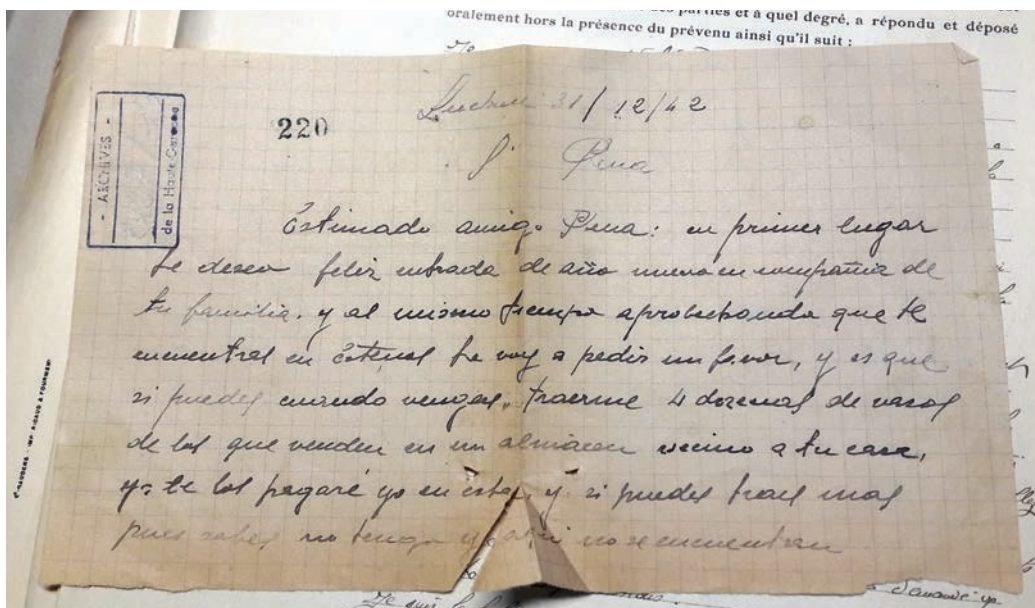 oralement hors la présence du prévenu ainsi qu'il suit :
des parties et à quel degré, a répondu et déposé
- ARCHIVES -
de la Haute-Garonne
220
31/12/42
Sr Pena
Estimado amigo Pena: en primer lugar
te deseo feliz entrada de año nuevo en compañia de
tu familia, y al mismo tiempo aprobechando que te
encuentras en te voy a pedir un favor, y es que
si puedes cuando vengas, traerme 4 dozenas de vasos
de los que venden en un almacen vecino a tu casa,
ya te los pagaré yo en esta, y si puedes traes mas
pues sabes no tengo y aqui no se encuentran
Je suis